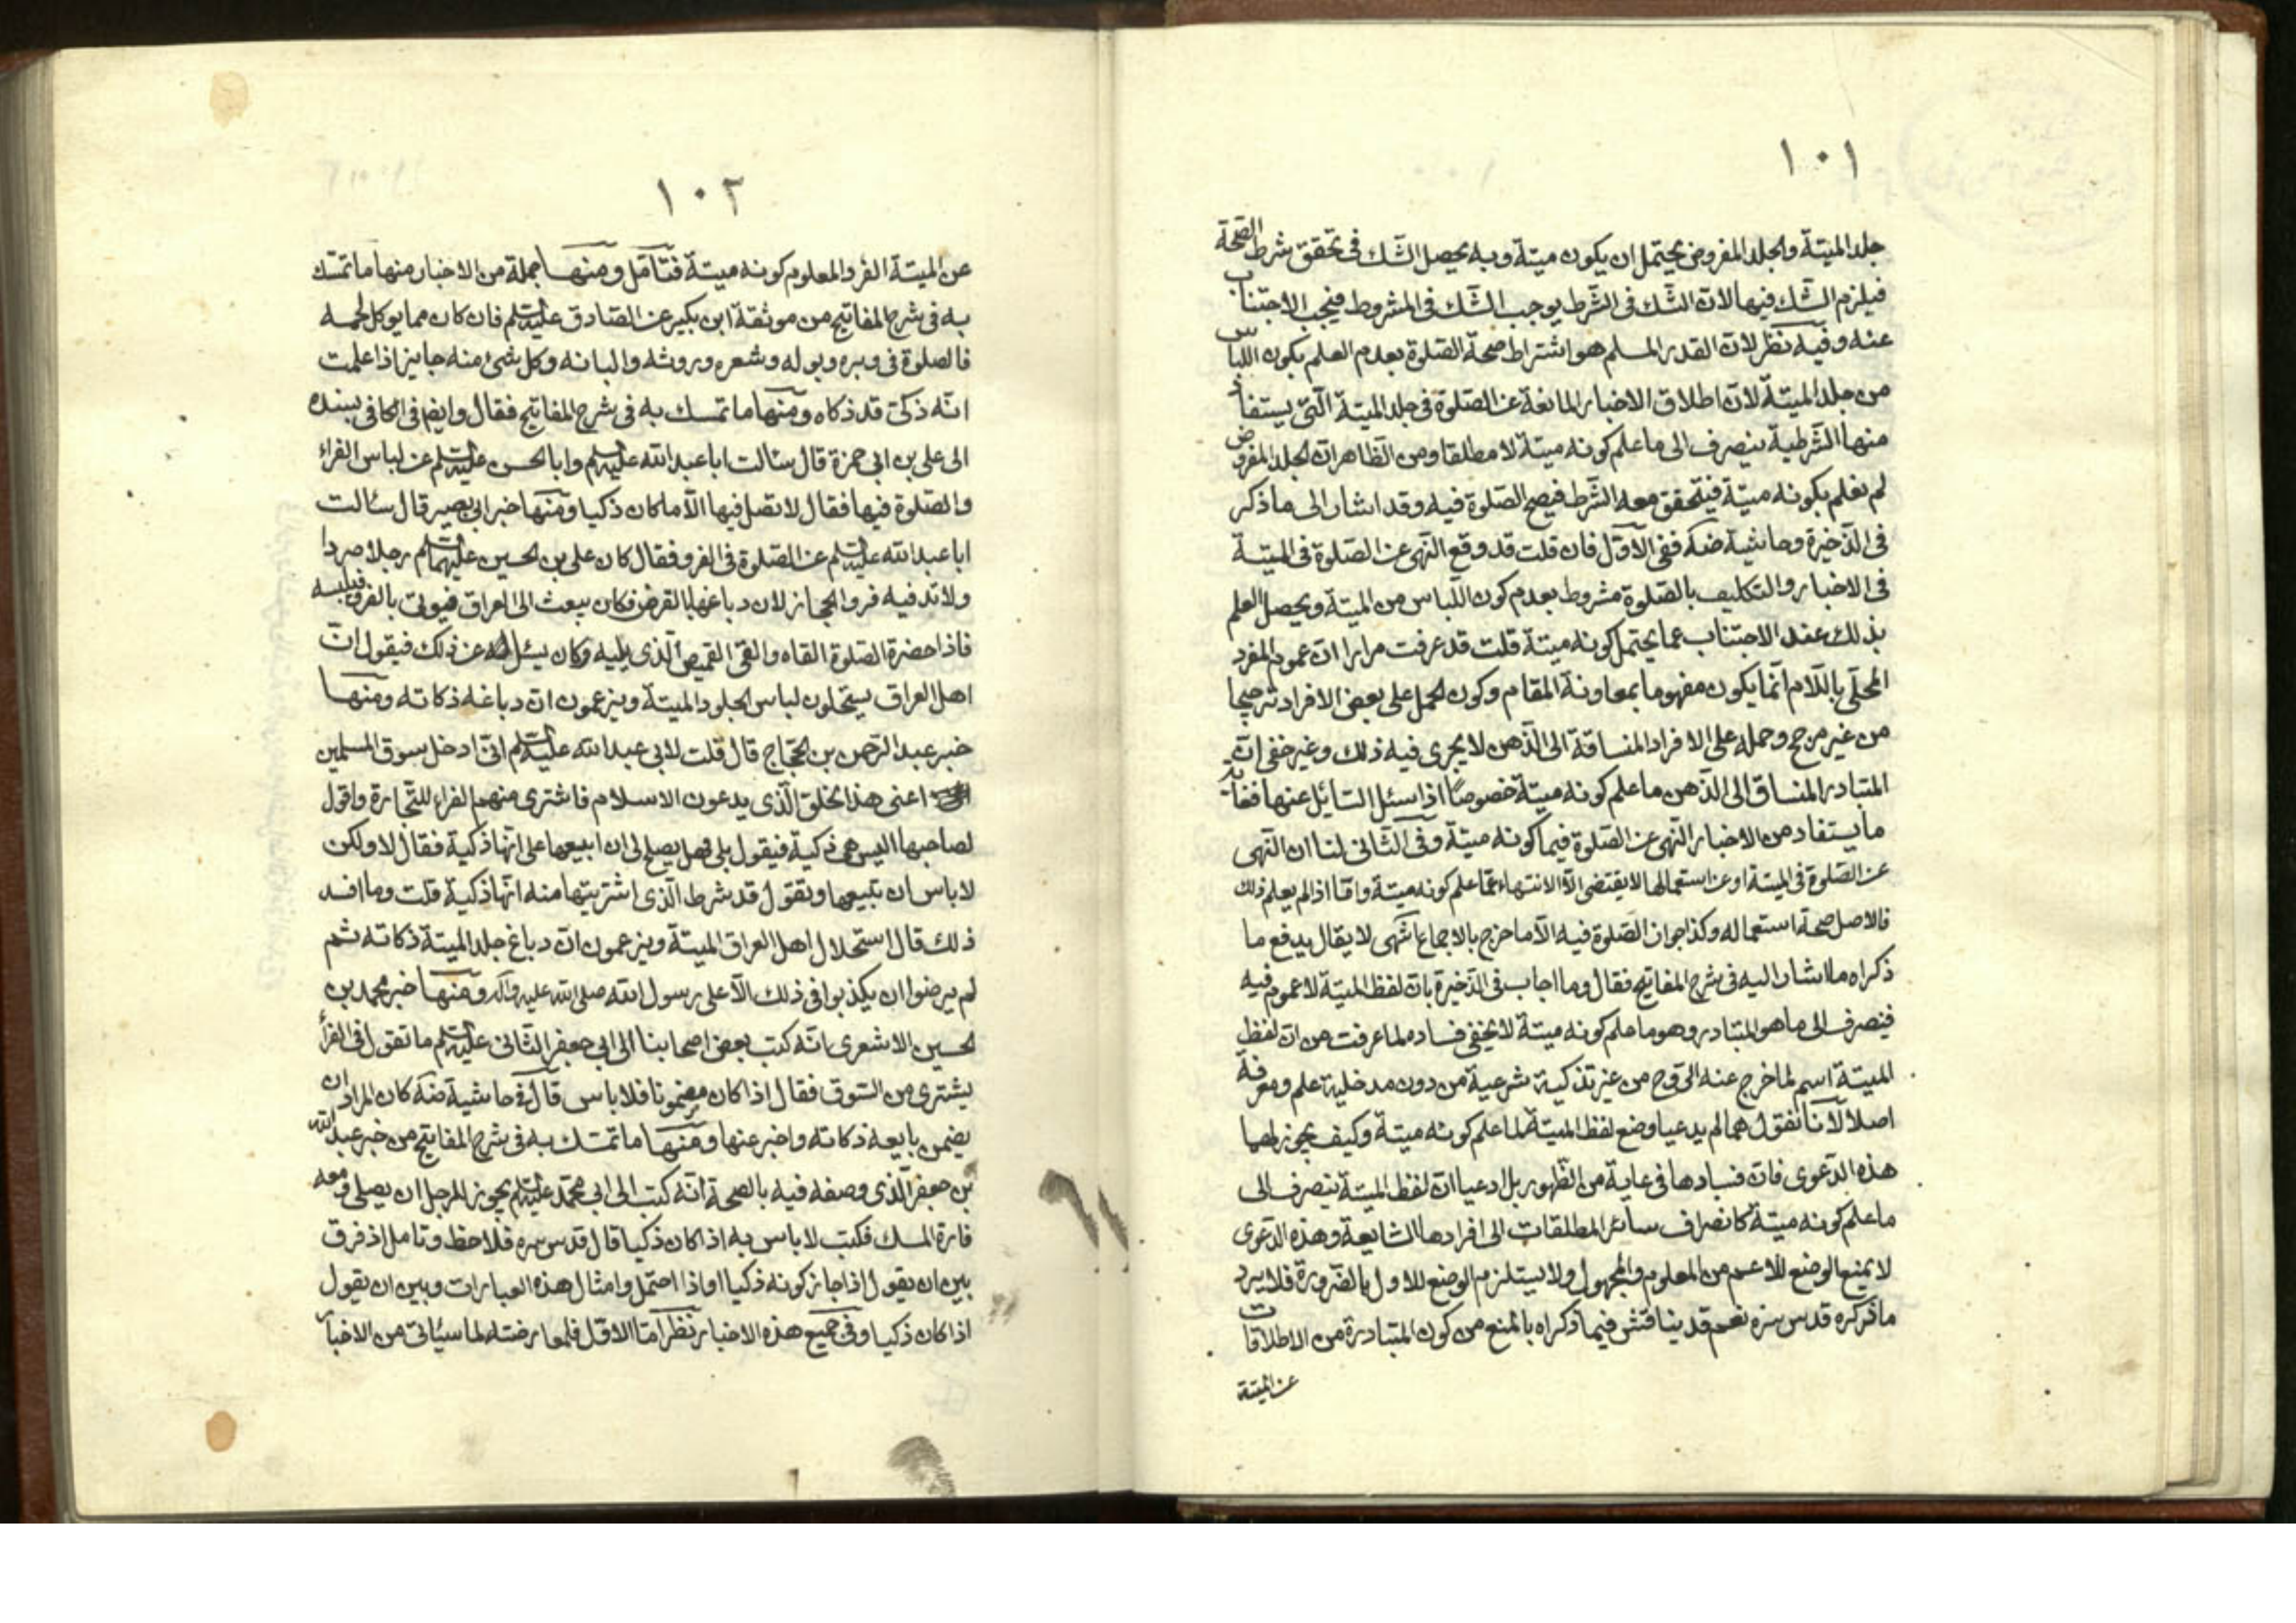 ١٠١
جلد الميتة والجلد المفروض يحتمل ان يكون ميتة وبه يحصل الشك فى تحقق شرط الصحة
فيلزم الشك فيها لان الشك فى الشرط يوجب الشك فى المشروط فيجب الاجتناب
عنه وفيه نظر لان القدر المسلم هو اشتراط صحة الصلوة بعدم العلم بكون اللباس
من جلد الميتة لان اطلاق الاخبار المانعة عن الصلوة فى جلد الميتة الّتى يستفاد
منها الشرطية ينصرف الى ما علم كونه ميتة لا مطلقا ومن الظاهر ان الجلد المفروض
لم نعلم بكونه ميتة فيتحقق معه الشرط فيصح الصلوة فيه وقد اشار الى ما ذكر
فى الذخيرة وحاشية ضه ففى الاوّل فان قلت قد وقع النهى عن الصلوة فى الميتة
فى الاخبار والتكليف بالصلوة مشروط بعدم كون اللباس من الميتة ويحصل العلم
بذلك عند الاجتناب عما يحتمل كونه ميتة قلت قد عرفت مرارا ان عموم المفرد
المحلّى باللام انّما يكون مفهوما بمعاونة المقام وكون الحمل على بعض الافراد ترجيحا
من غير مرجح وحمله على الافراد المنساقة الى الذهن لا يجرى فيه ذلك وغير خفى ان
المتبادر المنساق الى الذهن ما علم كونه ميتة خصوصًا اذا سئل السائل عنها فغاية
ما يستفاد من الاخبار النهى عن الصلوة فيما كونه ميتة وفى الثانى لنا ان النهى
عن الصلوة فى الميتة او عن استعمالها لا يقتضى الا الانتهاء عمّا علم كونه ميتة وامّا اذا لم يعلم ذلك
فالاصل صحة استعماله وكذا جواز الصّلوة فيه الّا ما خرج بالاجماع انتهى لا يقال يدفع ما
ذكراه ما اشار اليه فى شرح المفاتيح فقال وما اجاب فى الذخيرة بان لفظ الميتة لا عموم فيه
فينصرف الى ما هو المتبادر وهو ما علم كونه ميتة لا يخفى فساده لما عرفت من ان لفظ
الميتة اسم لما خرج عنه الروح من غير تذكية شرعية من دون مدخلية علم ومعرفة
اصلا لانّا نقول هما لم يدعيا وضع لفظ الميتة لما علم كونه ميتة وكيف يجوز لهما
هذه الدعوى فان فسادها فى غاية من الظهور بل ادعيا ان لفظ الميتة ينصرف الى
ما علم كونه ميتة كانصراف سائر المطلقات الى افرادها الشايعة وهذه الدّعوى
لا يمنع الوضع للاعم من المعلوم والمجهول ولا يستلزم الوضع للاول بالضرورة فلا يرد
ما ذكره قدس سره نعم قد يناقش فيما ذكراه بالمنع من كون المتبادرة من الاطلاقات
عن الميتة
١٠٢
عن الميتة الفرد المعلوم كونه ميتة فتأمّل ومنها جملة من الاخبار منها ما تمسّك
به فى شرح المفاتيح من موثقة ابن بكير عن الصّادق عليه السلم فان كان مما يوكل لحمه
فالصلوة فى وبره وبوله وشعره وروثه والبانه وكل شئ منه جايز اذا علمت
انّه ذكىّ قد ذكاه ومنها ما تمسك به فى شرح المفاتيح فقال وايضا فى الكافى بسنده
الى على بن ابى حمزة قال سئالت ابا عبد الله عليه السلم وابا الحسن عليه السلم عن لباس الفراء
والصّلوة فيها فقال لا تصل فيها الّا ما كان ذكيا ومنها خبر ابى بصير قال سئالت
ابا عبد الله عليه السلم عن الصّلوة فى الفرو فقال كان على بن الحسين عليهما السلم رجلا صردا
ولا تدفيه فرو الحجاز لان دباغها بالقرض فكان يبعث الى العراق فيؤتى بالفرو فيلبسه
فاذا حضرة الصّلوة القاه والقى القميص الّذى يليه وكان يسئل عن ذلك فيقول ان
اهل العراق يستحلون لباس الجلود الميتة ويزعمون انّ دباغه ذكاته ومنها
خبر عبد الرّحمن بن الحجّاج قال قلت لابى عبد الله عليه السلم انّى ادخل سوق المسلمين
اعنى هذا الخلق الّذى يدعون الاسلام فاشترى منهم الفراء للتّجارة واقول
لصاحبها اليس هى ذكية فيقول بلى فهل يصلح لى ان ابيعها على انّها ذكية فقال لا ولكن
لا باس ان تبيعها وتقول قد شرط الّذى اشتريتها منه انّها ذكية قلت وما افسد
ذلك قال استحلال اهل العراق الميتة ويزعمون انّ دباغ جلد الميتة ذكاته ثم
لم يرضوا ان يكذبوا فى ذلك الّا على رسول الله صلى الله عليه وآله ومنها خبر محمد بن
الحسين الاشعرى انّه كتب بعض اصحابنا الى ابى جعفر الثّانى عليه السلم ما تقول فى الفرأ
يشترى من السّوق فقال اذا كان مضمونا فلا باس قال فى حاشية ضه كان المراد ان
يضمن بايعه ذكاته واخبر عنها ومنها ما تمسّك به فى شرح المفاتيح من خبر عبد الله
بن جعفر الّذى وصفه فيه بالصحة انّه كتب الى ابى محمّد عليه السلم يجوز للرجل ان يصلى ومعه
فارة المسك فكتب لا باس به اذا كان ذكيا قال قدس سره فلاحظ وتامل اذ فرق
بين ان يقول اذا جاز كونه ذكيا او اذا احتمل وامثال هذه العبارات وبين ان يقول
اذا كان ذكيا وفى جميع هذه الاخبار نظر امّا الاوّل فلمعارضته لما سيأتى من الاخبار